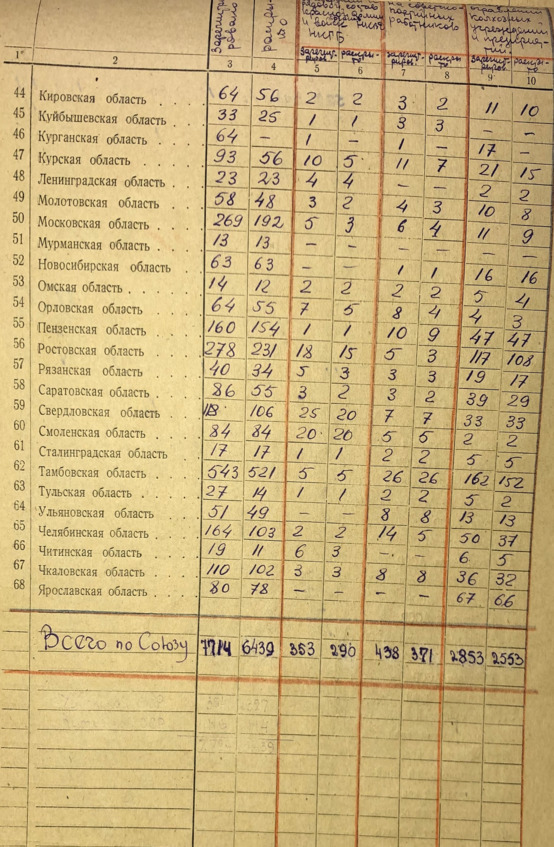 Зарегистрировано раскрыто рядовой состав и войск НКВД НКГБ на советско-партийных работников ограблений колхозных учреждений и предприятий
зарегистриров. раскрыто зарегистриров. раскрыто зарегистриров. раскрыто
1 2 3 4 5 6 7 8 9 10
44 Кировская область . . . 64 56 2 2 3 2 11 10
45 Куйбышевская область 33 25 1 1 3 3 – –
46 Курганская область . . 64 – 1 – 1 – 17 –
47 Курская область . . . . 93 56 10 5 11 7 21 15
48 Ленинградская область . . 23 23 4 4 – – 2 2
49 Молотовская область . . 58 48 3 2 4 3 10 8
50 Московская область . . . 269 192 5 3 6 4 11 9
51 Мурманская область . . 13 13 – – – – – –
52 Новосибирская область 63 63 – – 1 1 16 16
53 Омская область . . . . 14 12 2 2 2 2 5 4
54 Орловская область . . . 64 55 7 5 8 4 4 3
55 Пензенская область . . . 160 154 1 1 10 9 47 47
56 Ростовская область . . . 278 231 18 15 5 3 117 108
57 Рязанская область . . . 40 34 5 3 3 3 19 17
58 Саратовская область . . 86 55 3 2 3 2 39 29
59 Свердловская область . . 106 25 20 7 7 33 33
60 Смоленская область . . . 84 84 20 20 5 5 2 2
61 Сталинградская область . 17 17 1 1 2 2 5 5
62 Тамбовская область . . . 543 521 5 5 26 26 162 152
63 Тульская область . . . . 27 14 1 1 2 2 5 2
64 Ульяновская область . . 51 49 – – 8 8 13 13
65 Челябинская область . . 164 103 2 2 14 5 50 37
66 Читинская область . . . 19 11 6 3 – – 6 5
67 Чкаловская область . . . 110 102 3 3 8 8 36 32
68 Ярославская область . . 80 78 – – – – 67 66
Всего по Союзу 7714 6439 353 290 438 371 2853 2553